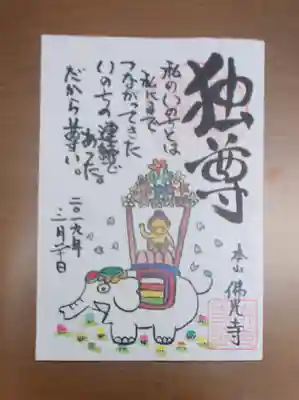 独尊
私のいのちとは
私にまで
つながってきた
いのちの連鎖で
あった。
だから尊い。
二〇一九年
三月二十日
本山 佛光寺